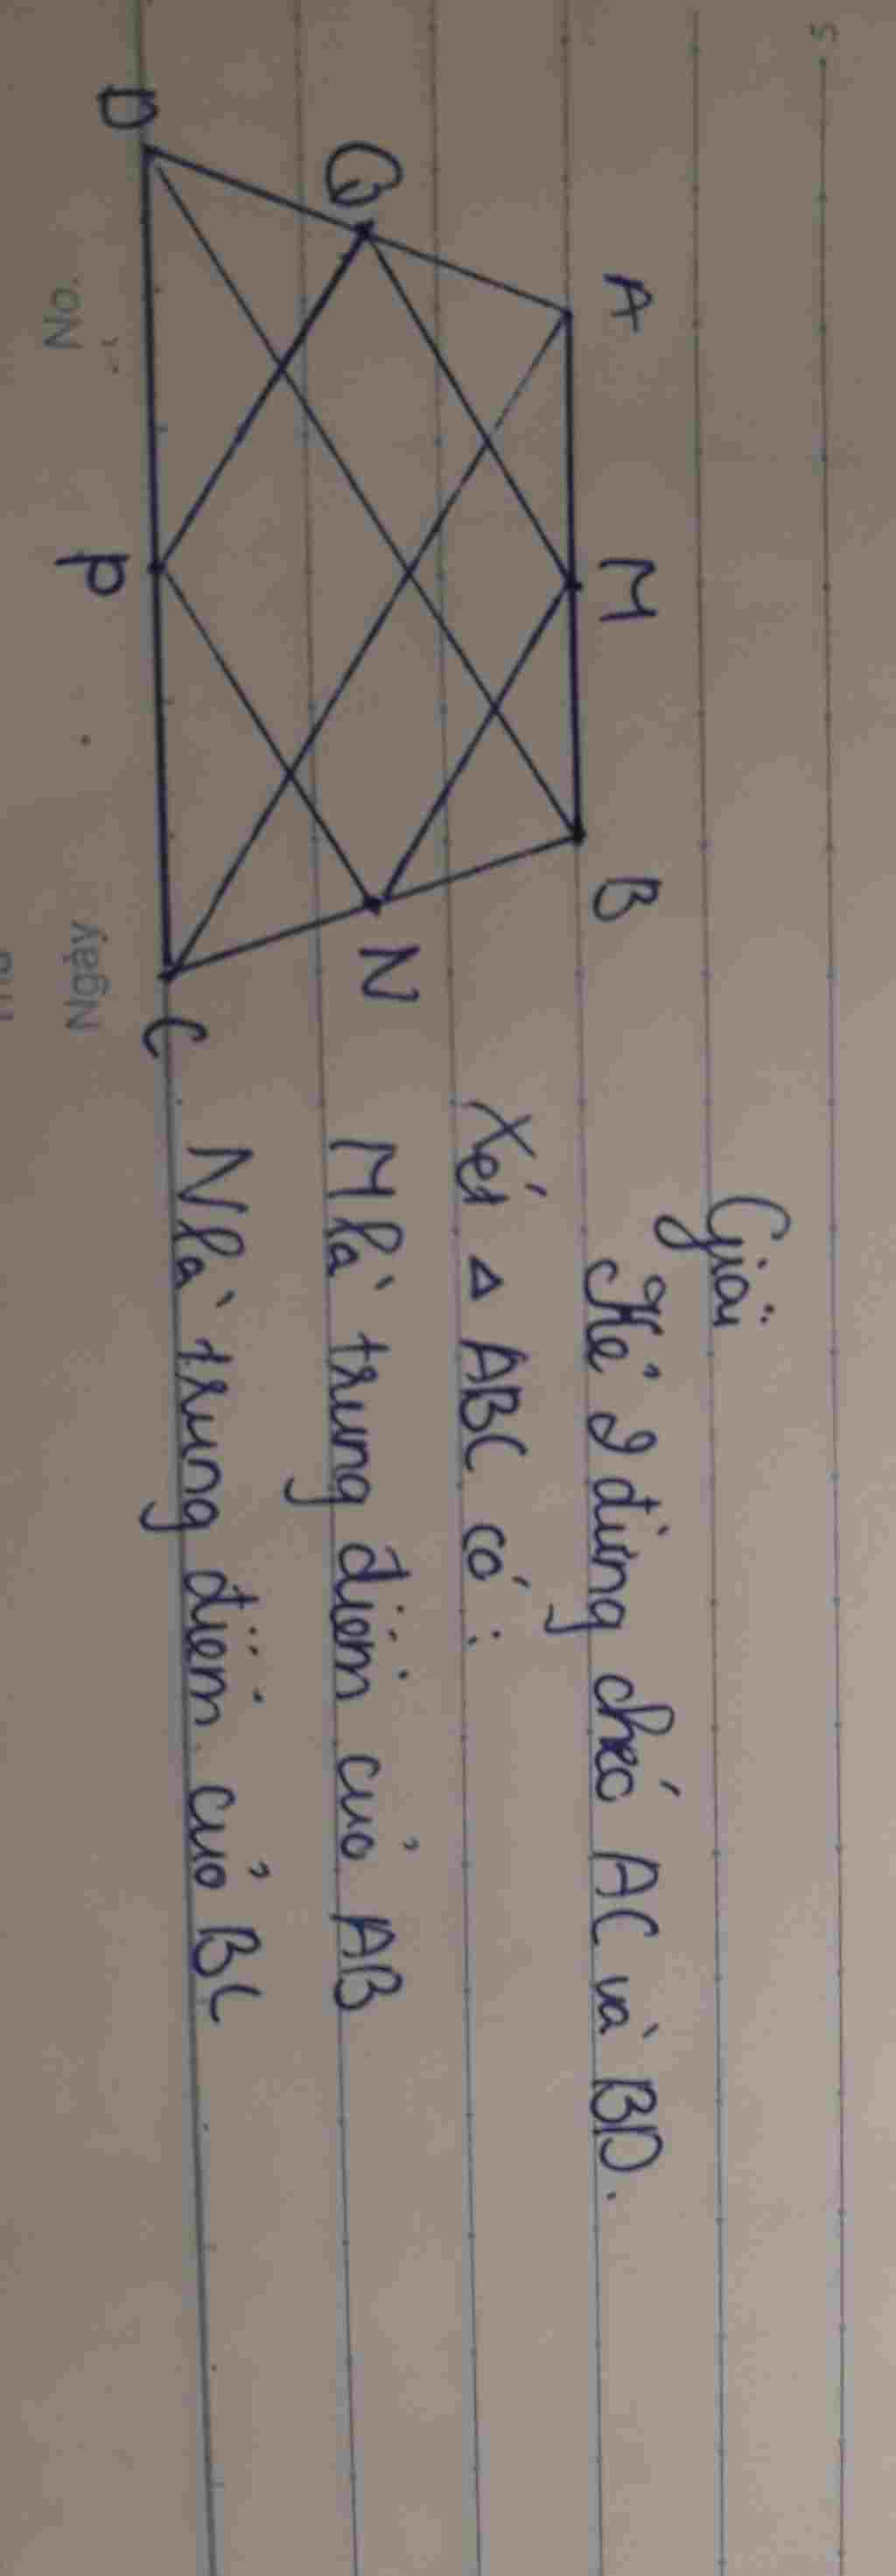 5
Giải
Kẻ 2 đường chéo AC và BD.
Xét Δ ABC có:
M là trung điểm của AB
N là trung điểm của BC
A M B
Q N
D P C
No.
Ngày